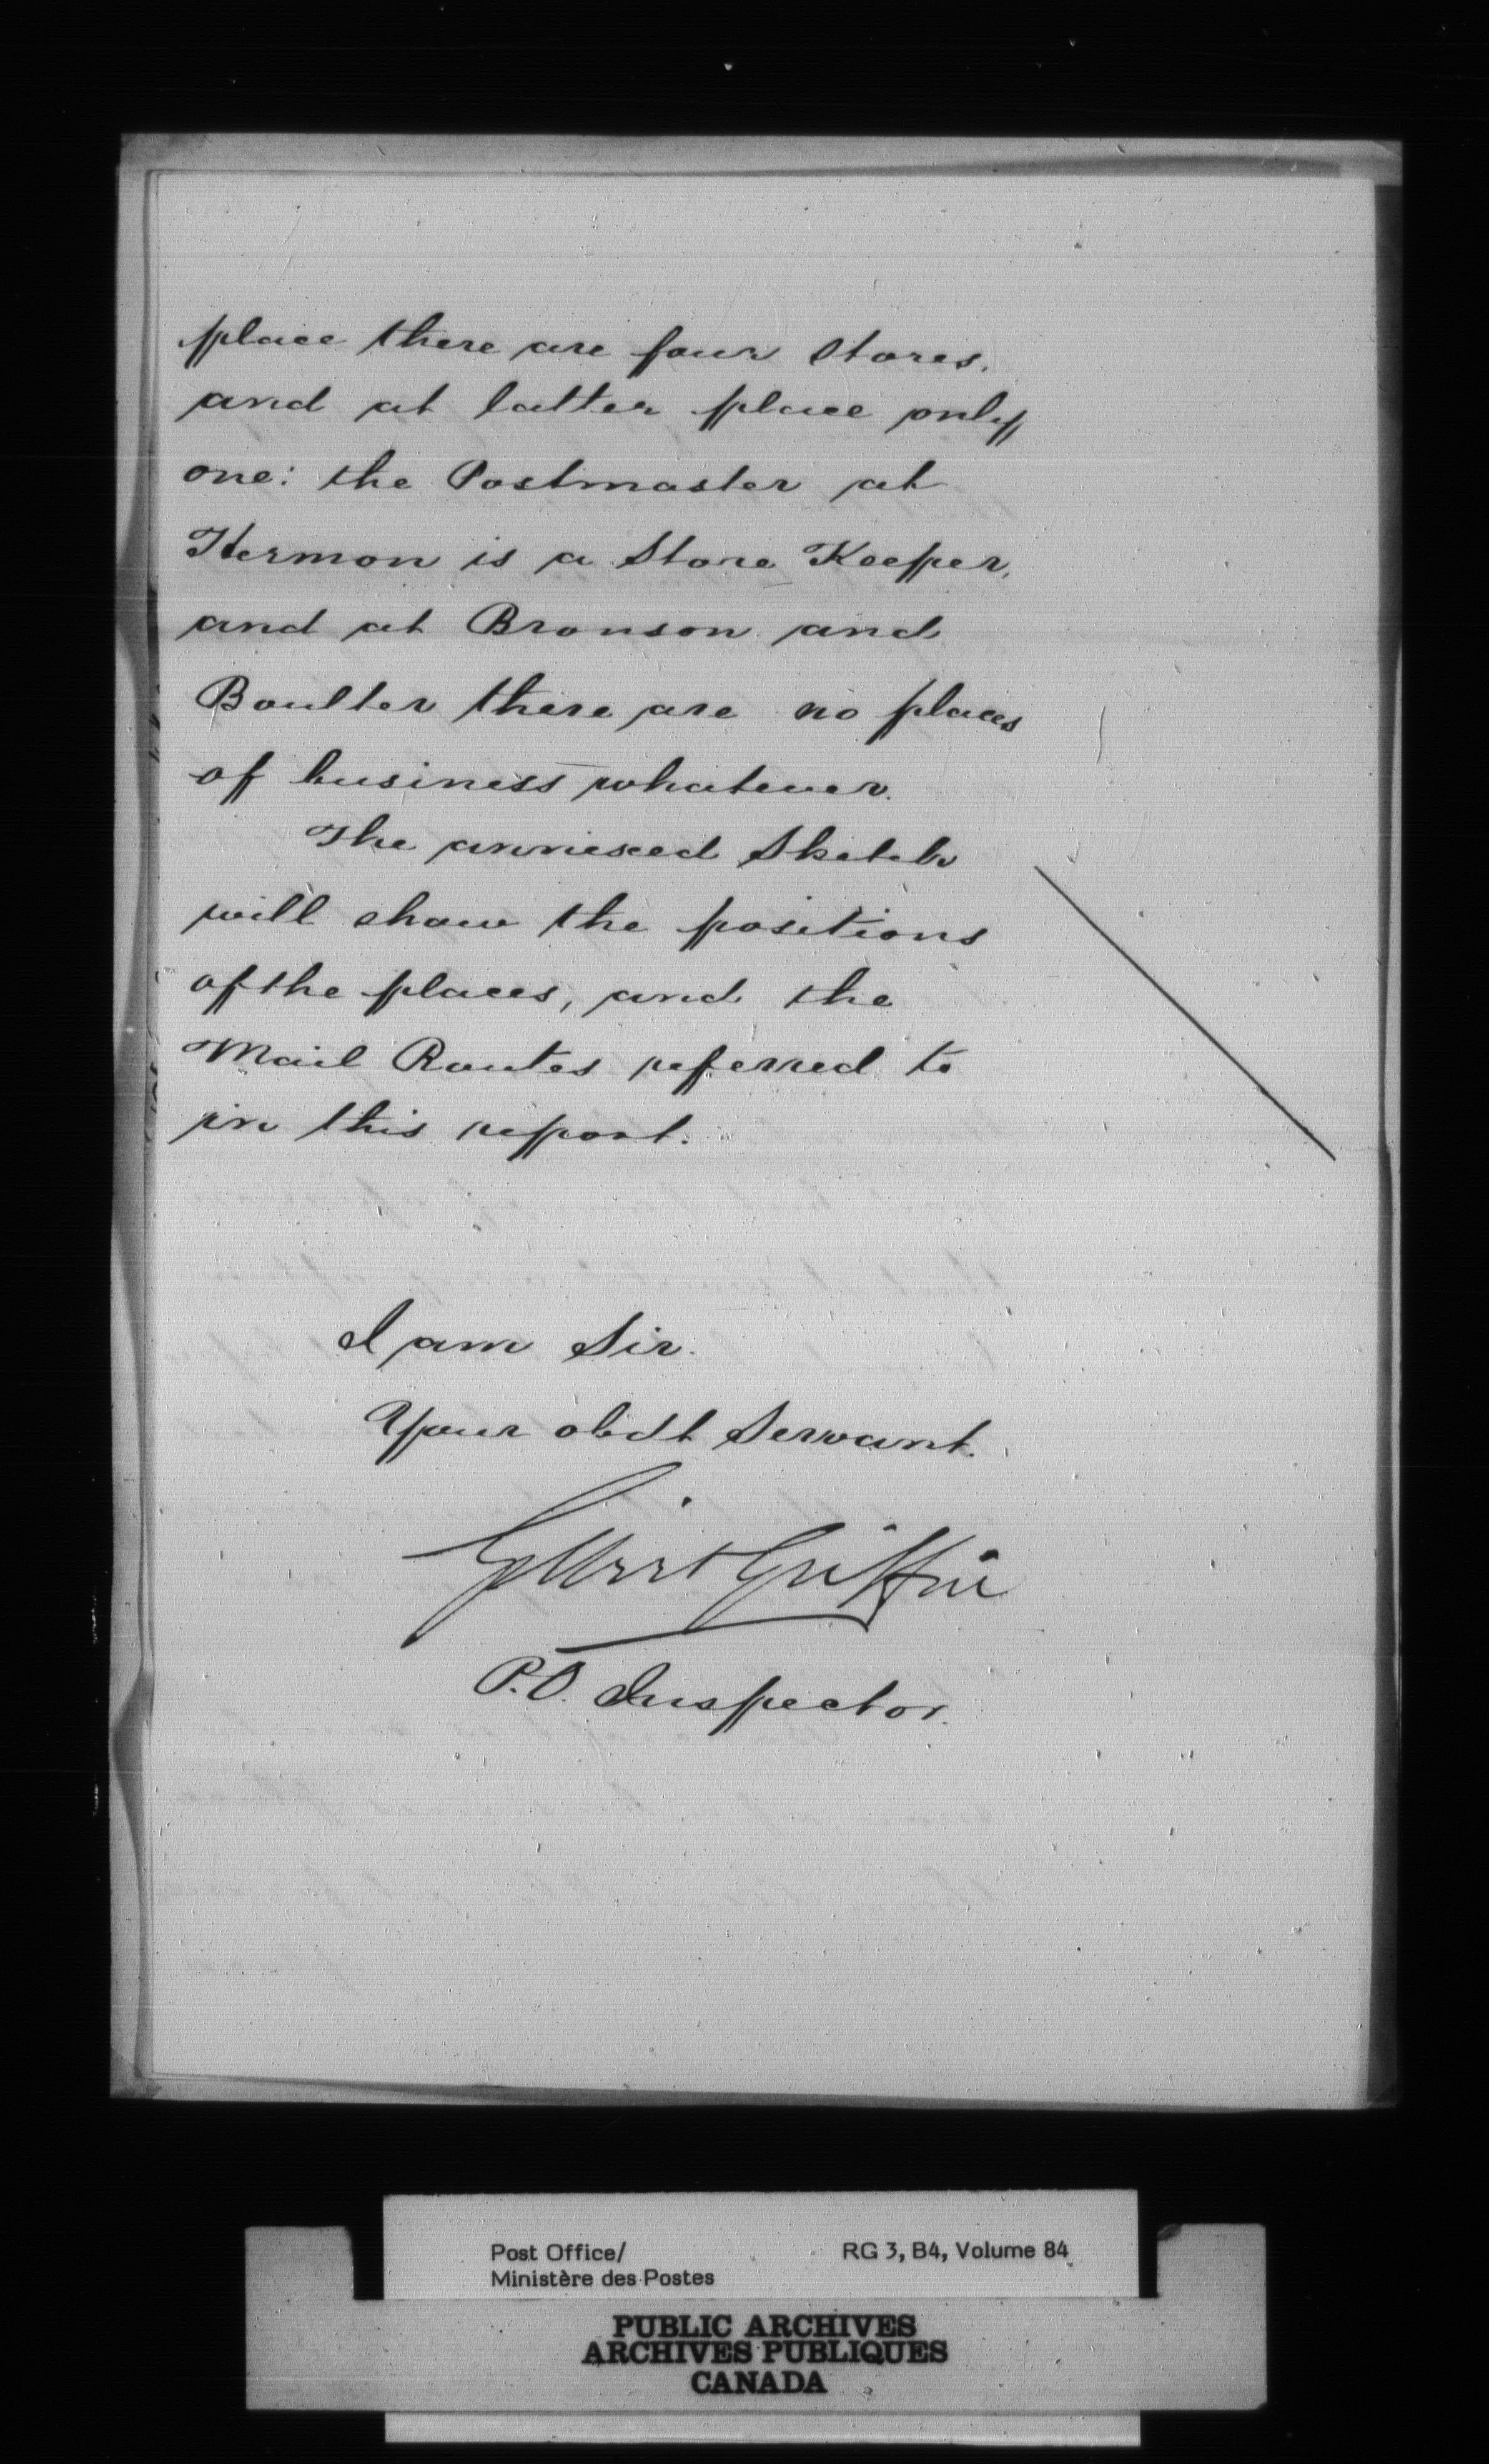 place there are four stores.
and at latter place only
one: the Postmaster at
Hermon is a Store Keeper,
and at Bronson and
Boulter there are no places
of business whatever.
The annexed Sketch
will show the positions
of the places, and the
Mail Routes referred to
in this report.
I am Sir.
Your obdt Servant.
Gilbert Griffin
P.O. Inspector.
Post Office/
Ministère des Postes
RG 3, B4, Volume 84
PUBLIC ARCHIVES
ARCHIVES PUBLIQUES
CANADA